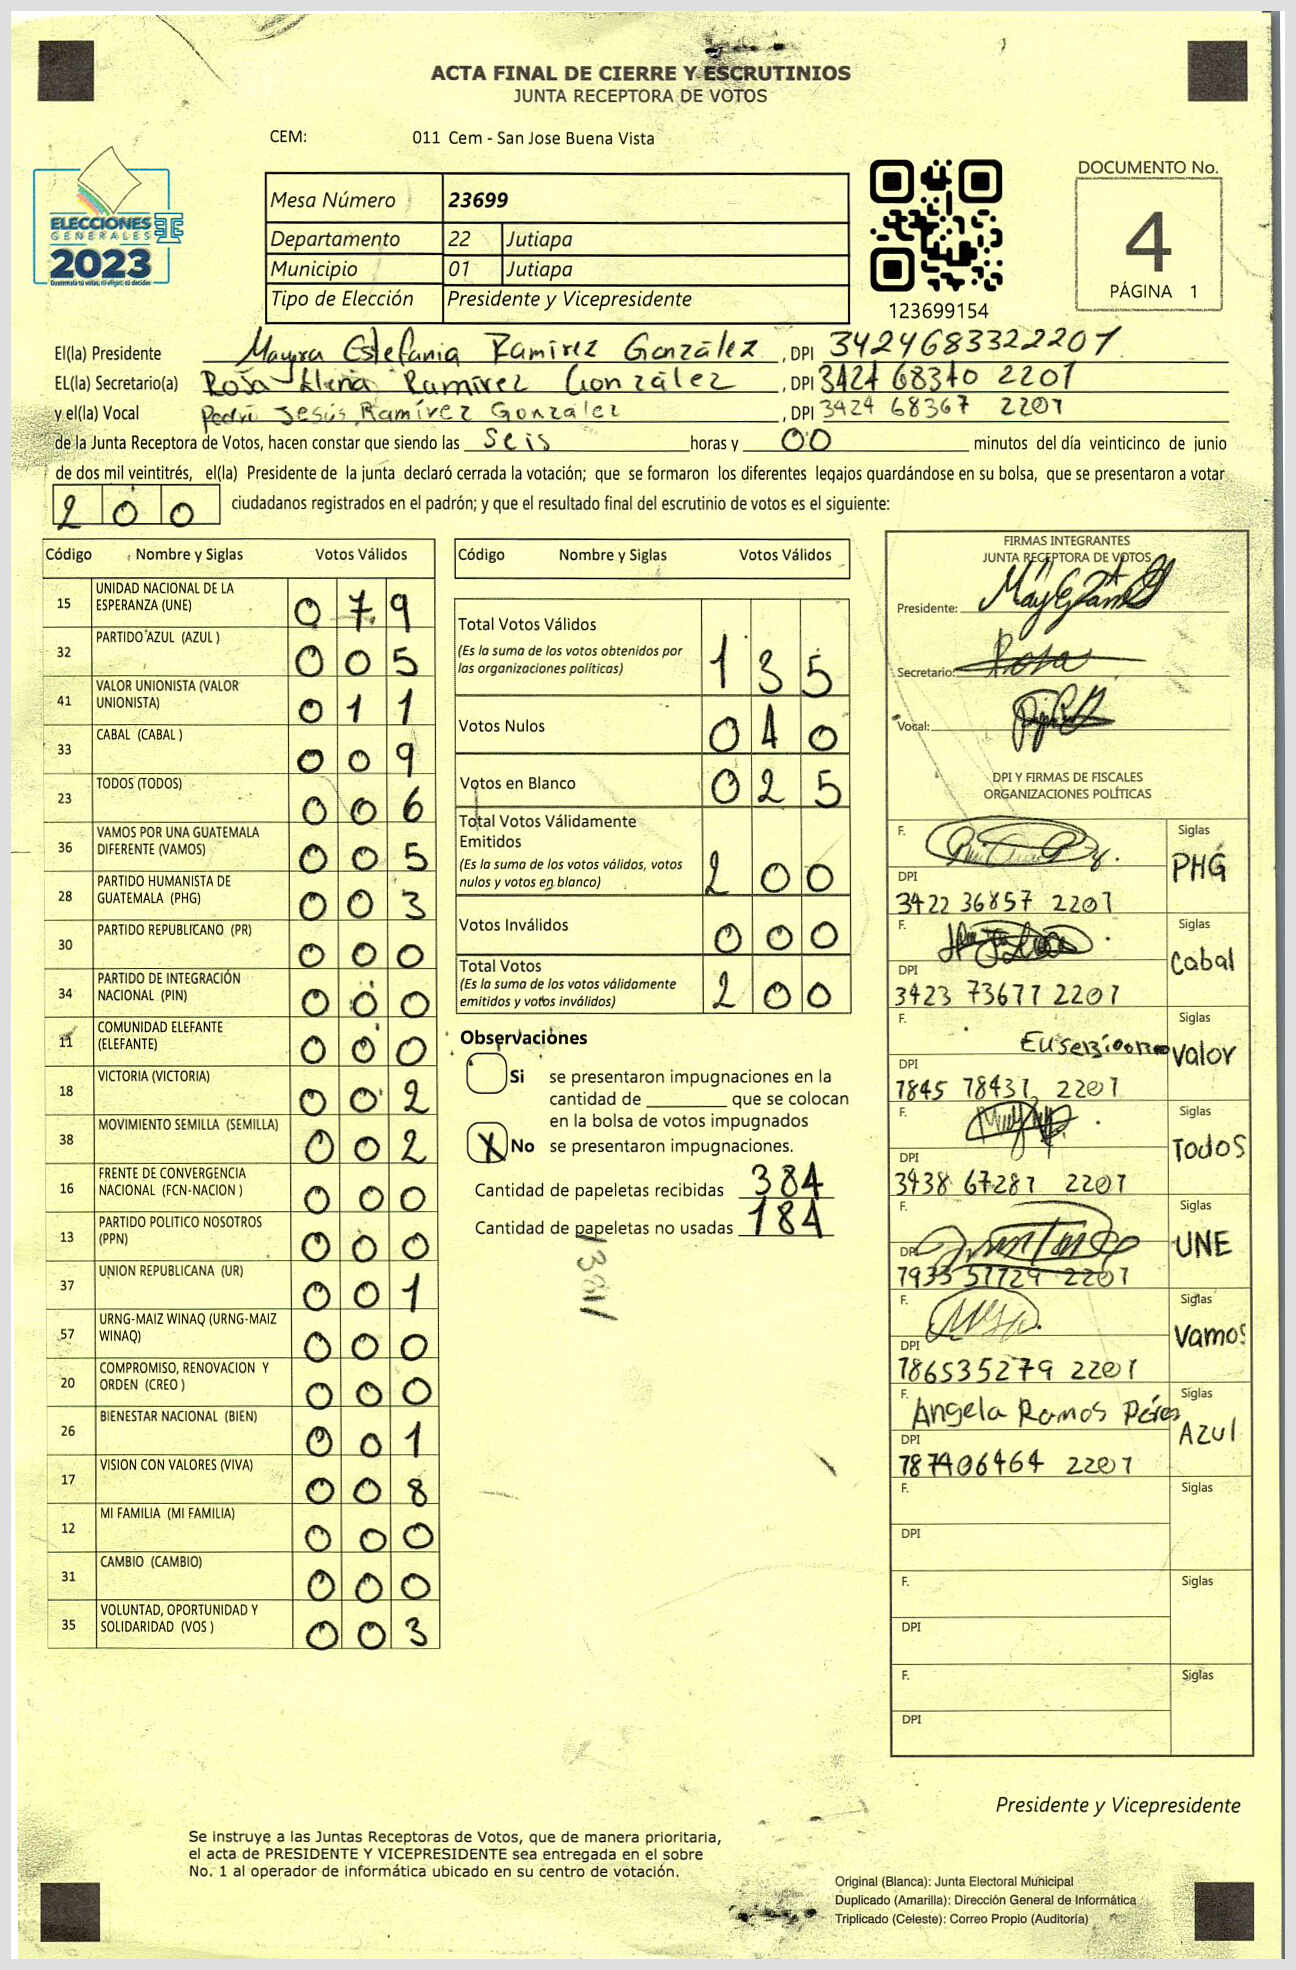 ACTA FINAL DE CIERRE Y ESCRUTINIOS
JUNTA RECEPTORA DE VOTOS
CEM: 011 Cem - San Jose Buena Vista
ELECCIONES
GENERALES
2023
Mesa Número 23699
Departamento 22 Jutiapa
Municipio 01 Jutiapa
Tipo de Elección Presidente y Vicepresidente
123699154
DOCUMENTO No.
4
PÁGINA 1
El(la) Presidente Mayra Estefania Ramírez González , DPI 3424683322201
EL(la) Secretario(a) Rosa Elena Ramírez González , DPI 3424 68340 2201
y el(la) Vocal Pedro Jesús Ramírez González , DPI 3424 68367 2201
de la Junta Receptora de Votos, hacen constar que siendo las Seis horas y 00 minutos del día veinticinco de junio
de dos mil veintitrés, el(la) Presidente de la junta declaró cerrada la votación; que se formaron los diferentes legajos quardándose en su bolsa, que se presentaron a votar
200 ciudadanos registrados en el padrón; y que el resultado final del escrutinio de votos es el siguiente:
Código Nombre y Siglas Votos Válidos
15 UNIDAD NACIONAL DE LA ESPERANZA (UNE) 079
32 PARTIDO AZUL (AZUL ) 005
41 VALOR UNIONISTA (VALOR UNIONISTA) 011
33 CABAL (CABAL ) 009
23 TODOS (TODOS) 006
36 VAMOS POR UNA GUATEMALA DIFERENTE (VAMOS) 005
28 PARTIDO HUMANISTA DE GUATEMALA (PHG) 003
30 PARTIDO REPUBLICANO (PR) 000
34 PARTIDO DE INTEGRACIÓN NACIONAL (PIN) 000
11 COMUNIDAD ELEFANTE (ELEFANTE) 000
18 VICTORIA (VICTORIA) 002
38 MOVIMIENTO SEMILLA (SEMILLA) 002
16 FRENTE DE CONVERGENCIA NACIONAL (FCN-NACION ) 000
13 PARTIDO POLITICO NOSOTROS (PPN) 000
37 UNION REPUBLICANA (UR) 001
57 URNG-MAIZ WINAQ (URNG-MAIZ WINAQ) 000
20 COMPROMISO, RENOVACION Y ORDEN (CREO ) 000
26 BIENESTAR NACIONAL (BIEN) 001
17 VISION CON VALORES (VIVA) 008
12 MI FAMILIA (MI FAMILIA) 000
31 CAMBIO (CAMBIO) 000
35 VOLUNTAD, OPORTUNIDAD Y SOLIDARIDAD (VOS ) 003
Código Nombre y Siglas Votos Válidos
Total Votos Válidos 135
(Es la suma de los votos obtenidos por
las organizaciones políticas)
Votos Nulos 040
Votos en Blanco 025
Total Votos Válidamente
Emitidos 200
(Es la suma de los votos válidos, votos
nulos y votos en blanco)
Votos Inválidos 000
Total Votos 200
(Es la suma de los votos válidamente
emitidos y votos inválidos)
Observaciones
Si se presentaron impugnaciones en la
cantidad de que se colocan
en la bolsa de votos impugnados
X No se presentaron impugnaciones.
Cantidad de papeletas recibidas 384
Cantidad de papeletas no usadas 184
FIRMAS INTEGRANTES
JUNTA RECEPTORA DE VOTOS
Presidente:
Secretario: Rosa
Vocal:
DPI Y FIRMAS DE FISCALES
ORGANIZACIONES POLÍTICAS
F. Siglas
PHG
DPI
3422 36857 2201
F. Siglas
Cabal
DPI
3423 73677 2201
F. Siglas
Valor
DPI
7845 78431 2201
F. Siglas
Todos
DPI
3438 67281 2201
F. Siglas
UNE
DPI
7933 57729 2201
F. Siglas
Vamos
DPI
786535279 2201
F. Angela Ramos Pérez Siglas
Azul
DPI
787406464 2201
F. Siglas
DPI
F. Siglas
DPI
F. Siglas
DPI
Presidente y Vicepresidente
Se instruye a las Juntas Receptoras de Votos, que de manera prioritaria,
el acta de PRESIDENTE Y VICEPRESIDENTE sea entregada en el sobre
No. 1 al operador de informática ubicado en su centro de votación.
Original (Blanca): Junta Electoral Municipal
Duplicado (Amarilla): Dirección General de Informática
Triplicado (Celeste): Correo Propio (Auditoría)